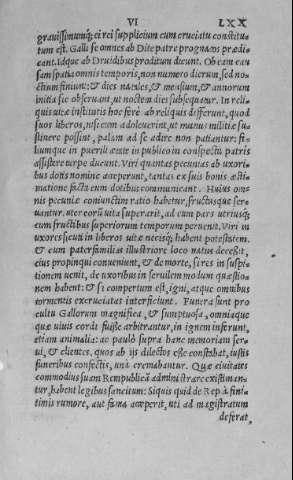 VI LXX
grauissimumq; ei rei supplicium cum cruciatu constitu-
tum est. Galli se omnes ab Dite patre prognatos prædi-
cant. Idque ab Druidibus proditum dicunt. Ob eam cau
sam spatia omnis temporis, non numero dierum, sed no-
ctium finiunt: & dies natales, & mensium, & annorum
initia sic obseruant, ut noctem dies subsequatur. In reli-
quis uitæ institutis hoc ferè ab reliquis differunt, quod
suos liberos, nisi cum adoleuerint, ut munus militiæ su-
stinere possint, palam ad se adire non patiantur: fi-
liumque in puerili ætate in publico in conspectu patris
assistere turpe ducunt. Viri quantas pecunias ab uxori-
bus dotis nomine acceperunt, tantas ex suis bonis æsti-
matione facta cum dotibus communicant. Huius om-
nis pecuniæ coniunctim ratio habetur, fructusque ser-
uantur. uter eorū uita superarit, ad eum pars utriusq;
cum fructibus superiorum temporum peruenit. Viri in
uxores sicuti in liberos uitæ necisq; habent potestatem.
& cum paterfamilias illustriore loco natus decessit,
eius propinqui conueniunt, & de morte, si res in suspi-
tionem uenit, de uxoribus in seruilem modum quæstio-
nem habent: & si compertum est, igni, atque omnibus
tormentis excruciatas interficiunt. Funera sunt pro
cultu Gallorum magnifica, & sumptuosa, omniaque
quæ uiuis cordi fuisse arbitrantur, in ignem inferunt,
etiam animalia: ac paulò supra hanc memoriam ser-
ui, & clientes, quos ab ijs dilectos esse constabat, iustis
funeribus confectis, unà cremabantur. Quæ ciuitates
commodius suam Rempublicā administrare existiman-
tur, habent legibus sancitum: Siquis quid de Rep. à fini-
timis rumore, aut fama acceperit, uti ad magistratum
deferat,